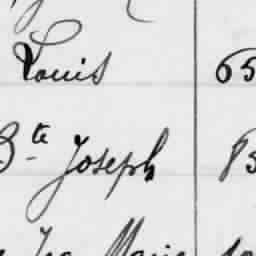 Louis 65
Bte Joseph 85
Marie